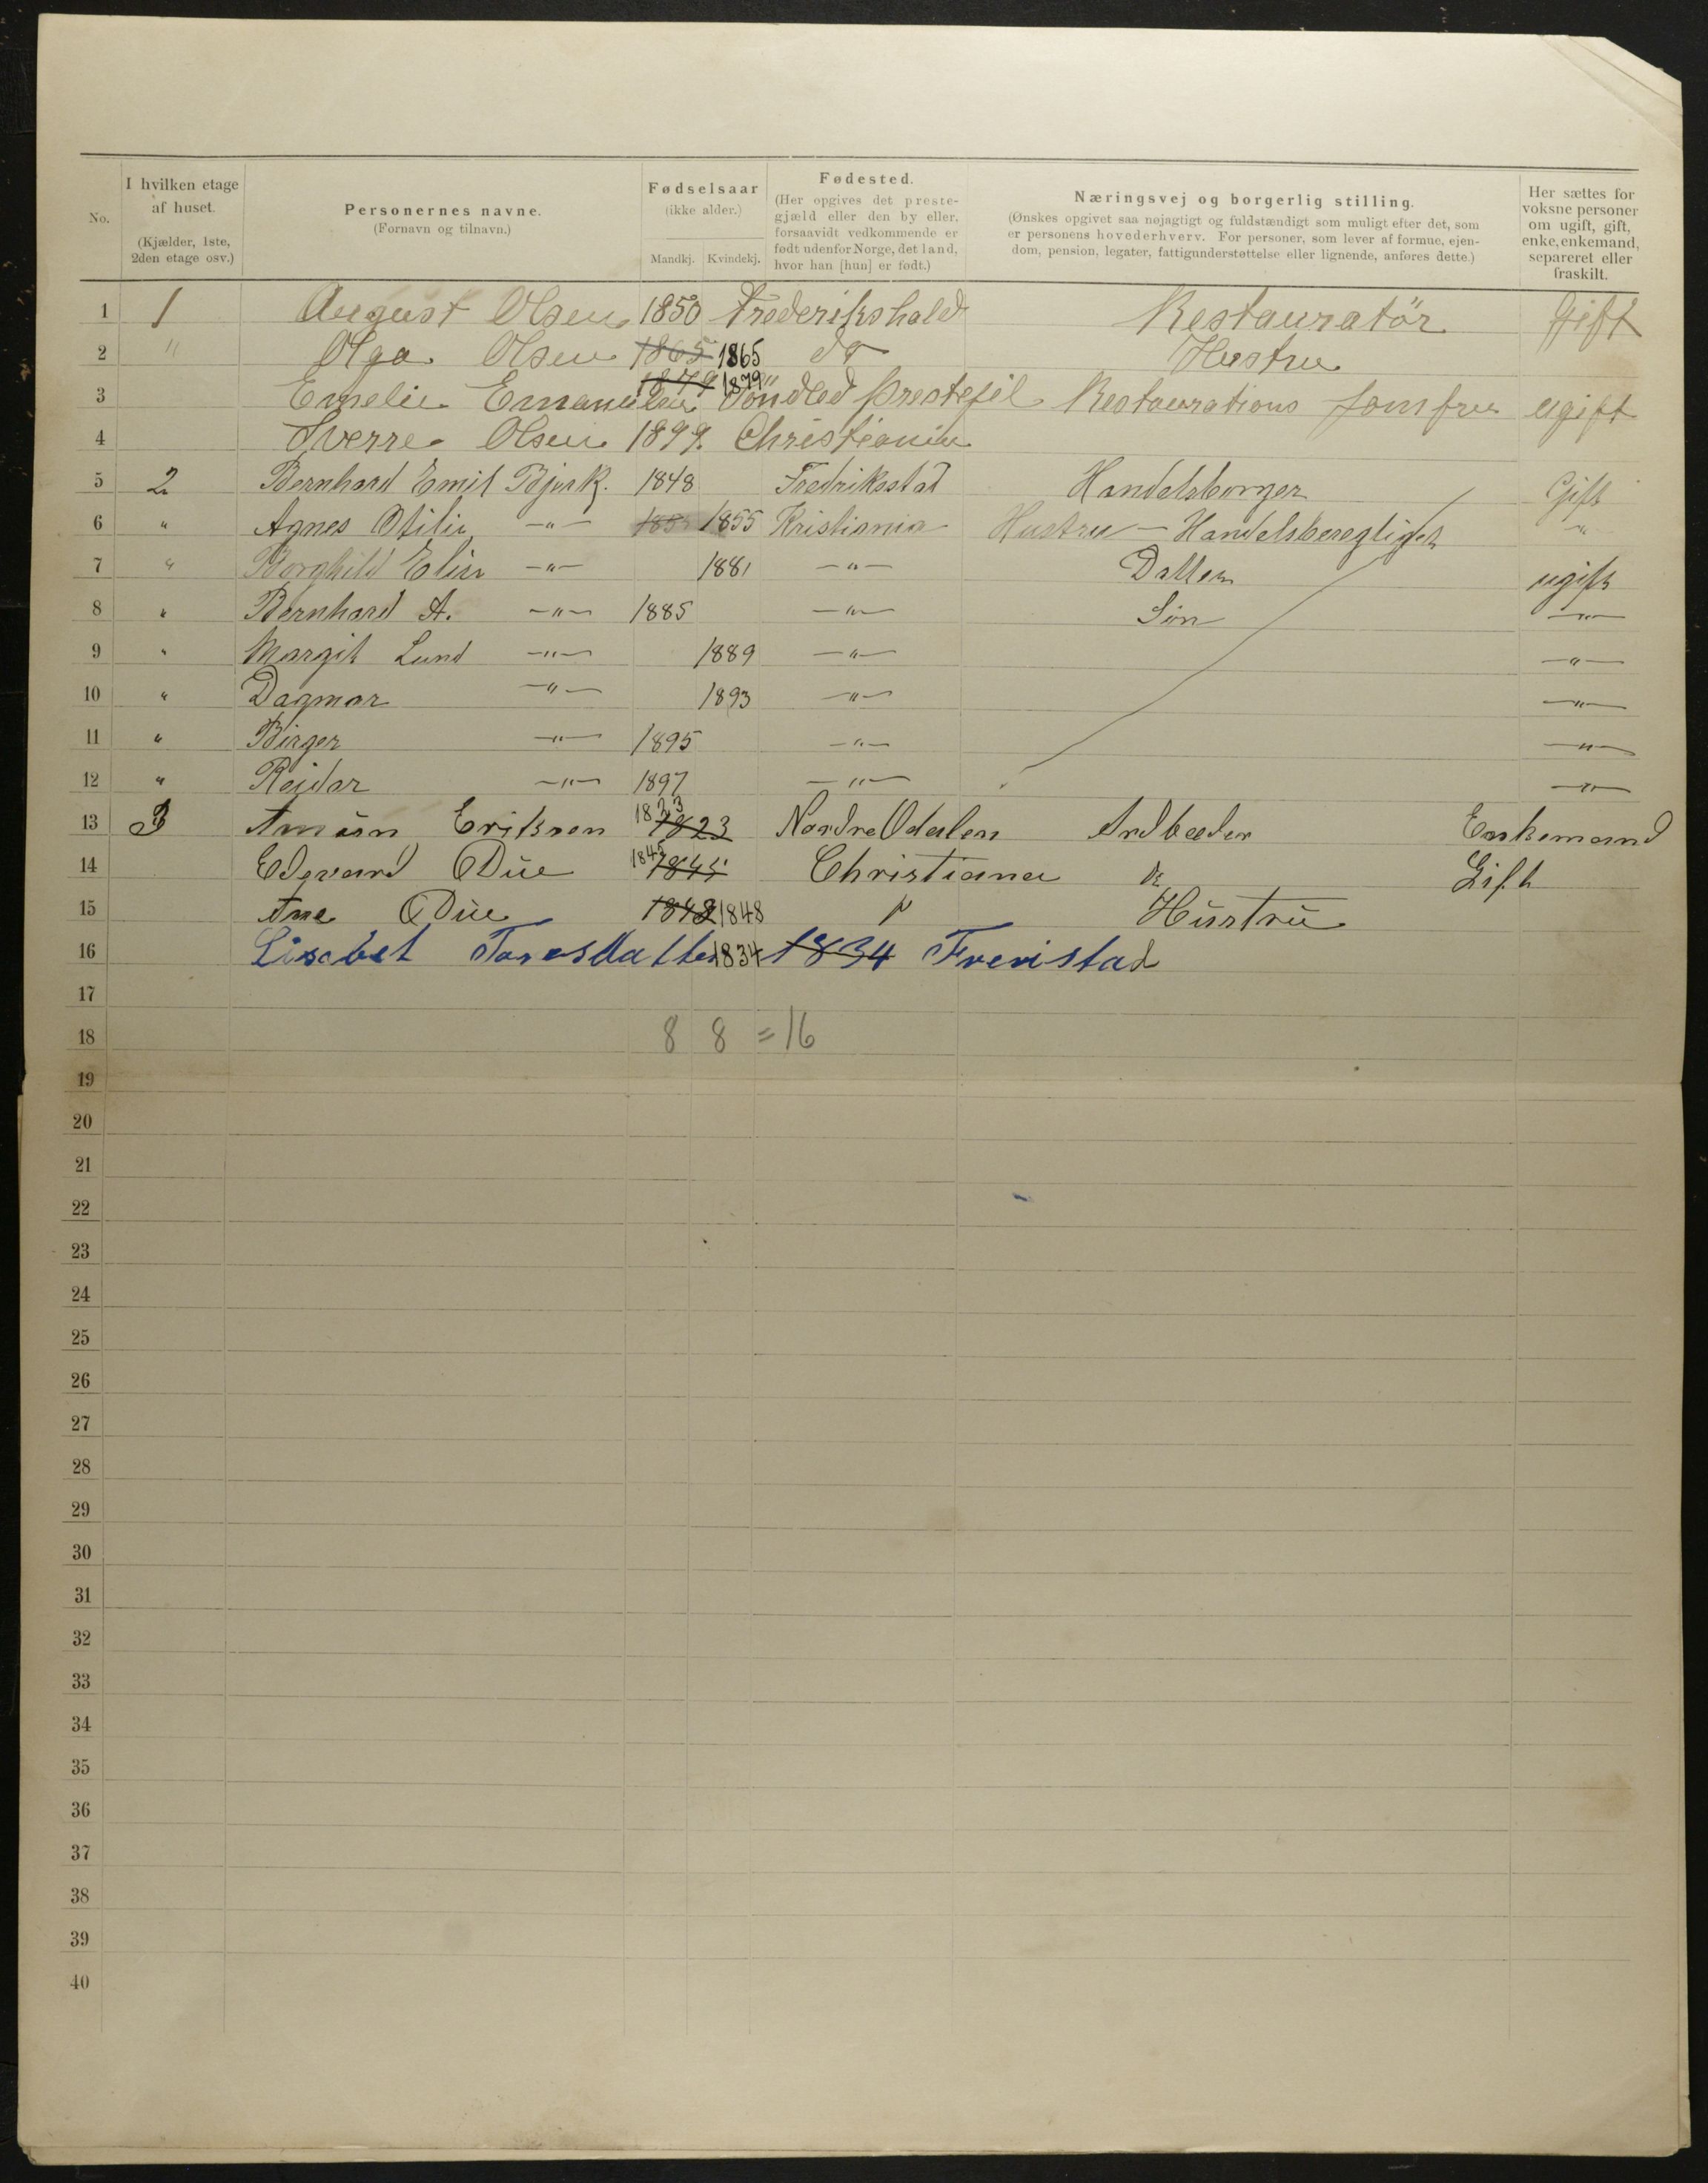 No.
I hvilken etage af huset. (Kjælder, 1ste, 2den etage osv.)
Personernes navne. (Fornavn og tilnavn.)
Fødselsaar (ikke alder.) Mandkj. Kvindekj.
Fødested. (Her opgives det prestegjæld eller den by eller, forsaavidt vedkommende er født udenfor Norge, det land, hvor han [hun] er født.)
Næringsvej og borgerlig stilling. (Ønskes opgivet saa nøjagtigt og fuldstændigt som muligt efter det, som er personens hovederhverv. For personer, som lever af formue, ejendom, pension, legater, fattigunderstøttelse eller lignende, anføres dette.)
Her sættes for voksne personer om ugift, gift, enke, enkemand, separeret eller fraskilt.
1 1 August Olsen 1850 Frederikshald Restauratör Gift
2 " Olga Olsen 1865 1865 do Hustru
3 Emelie 1879 1879 prestejil Restaurations Jomfru ugift
4 Sverre Olsen 1899. Christiania
5 2 Bernhard Emil Bjerk. 1848 Fredriksstad Handelsborger Gift
6 " Agnes Otilie -"- 1855 1855 Kristiania Hustru - -"-
7 " Borghild Elise -"- 1881 -"- Datter ugift
8 " Bernhard A. -"- 1885 -"- Søn -"-
9 " Margit Lund -"- 1889 -"- -"-
10 " Dagmar -"- 1893 -"- -"-
11 " Birger -"- 1895 -"- -"-
12 " Reidar -"- 1897 -"- -"-
13 3 Amunn Eriksen 1823 1823 Nordre Odalen Enkemand
14 Edevard Due 1845 1845 Christiana do Gift
15 Ane Due 1848 1848 Hustru
16 Lisabet Taresdatter 1834 1834
17
18 8 8 = 16
19
20
21
22
23
24
25
26
27
28
29
30
31
32
33
34
35
36
37
38
39
40